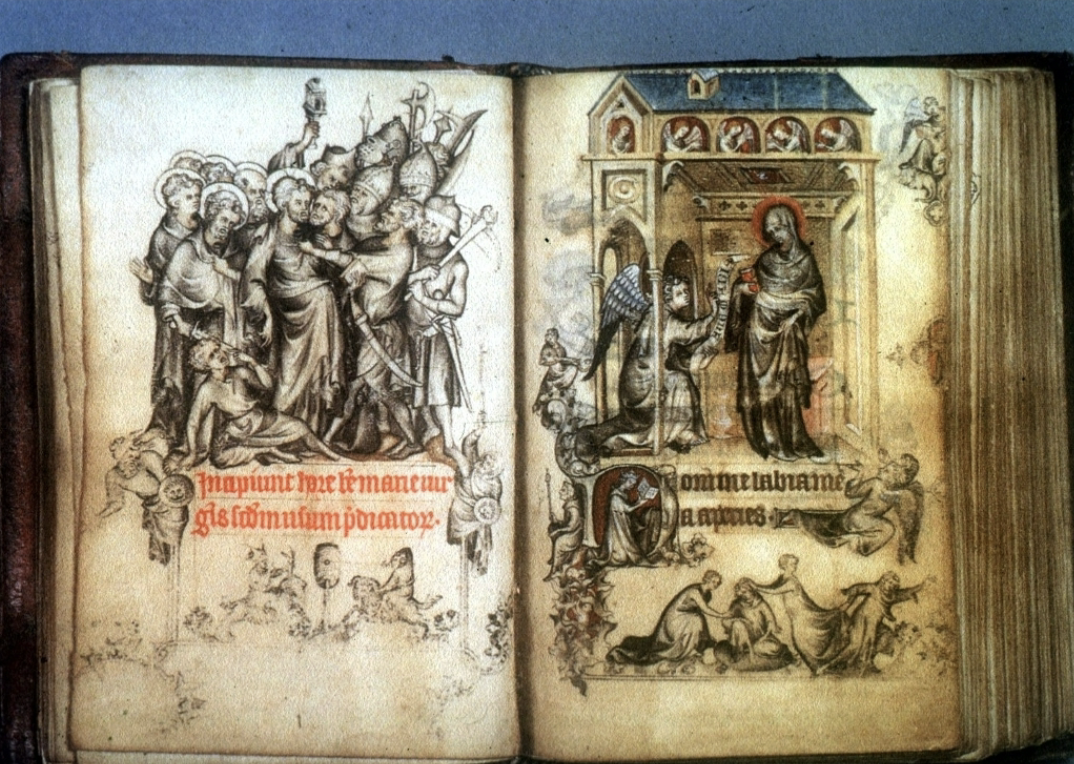 Incipiunt hore bē marie uir
gis scdm usum p̄dicatoꝝ.
Domine labia me
a aperies.